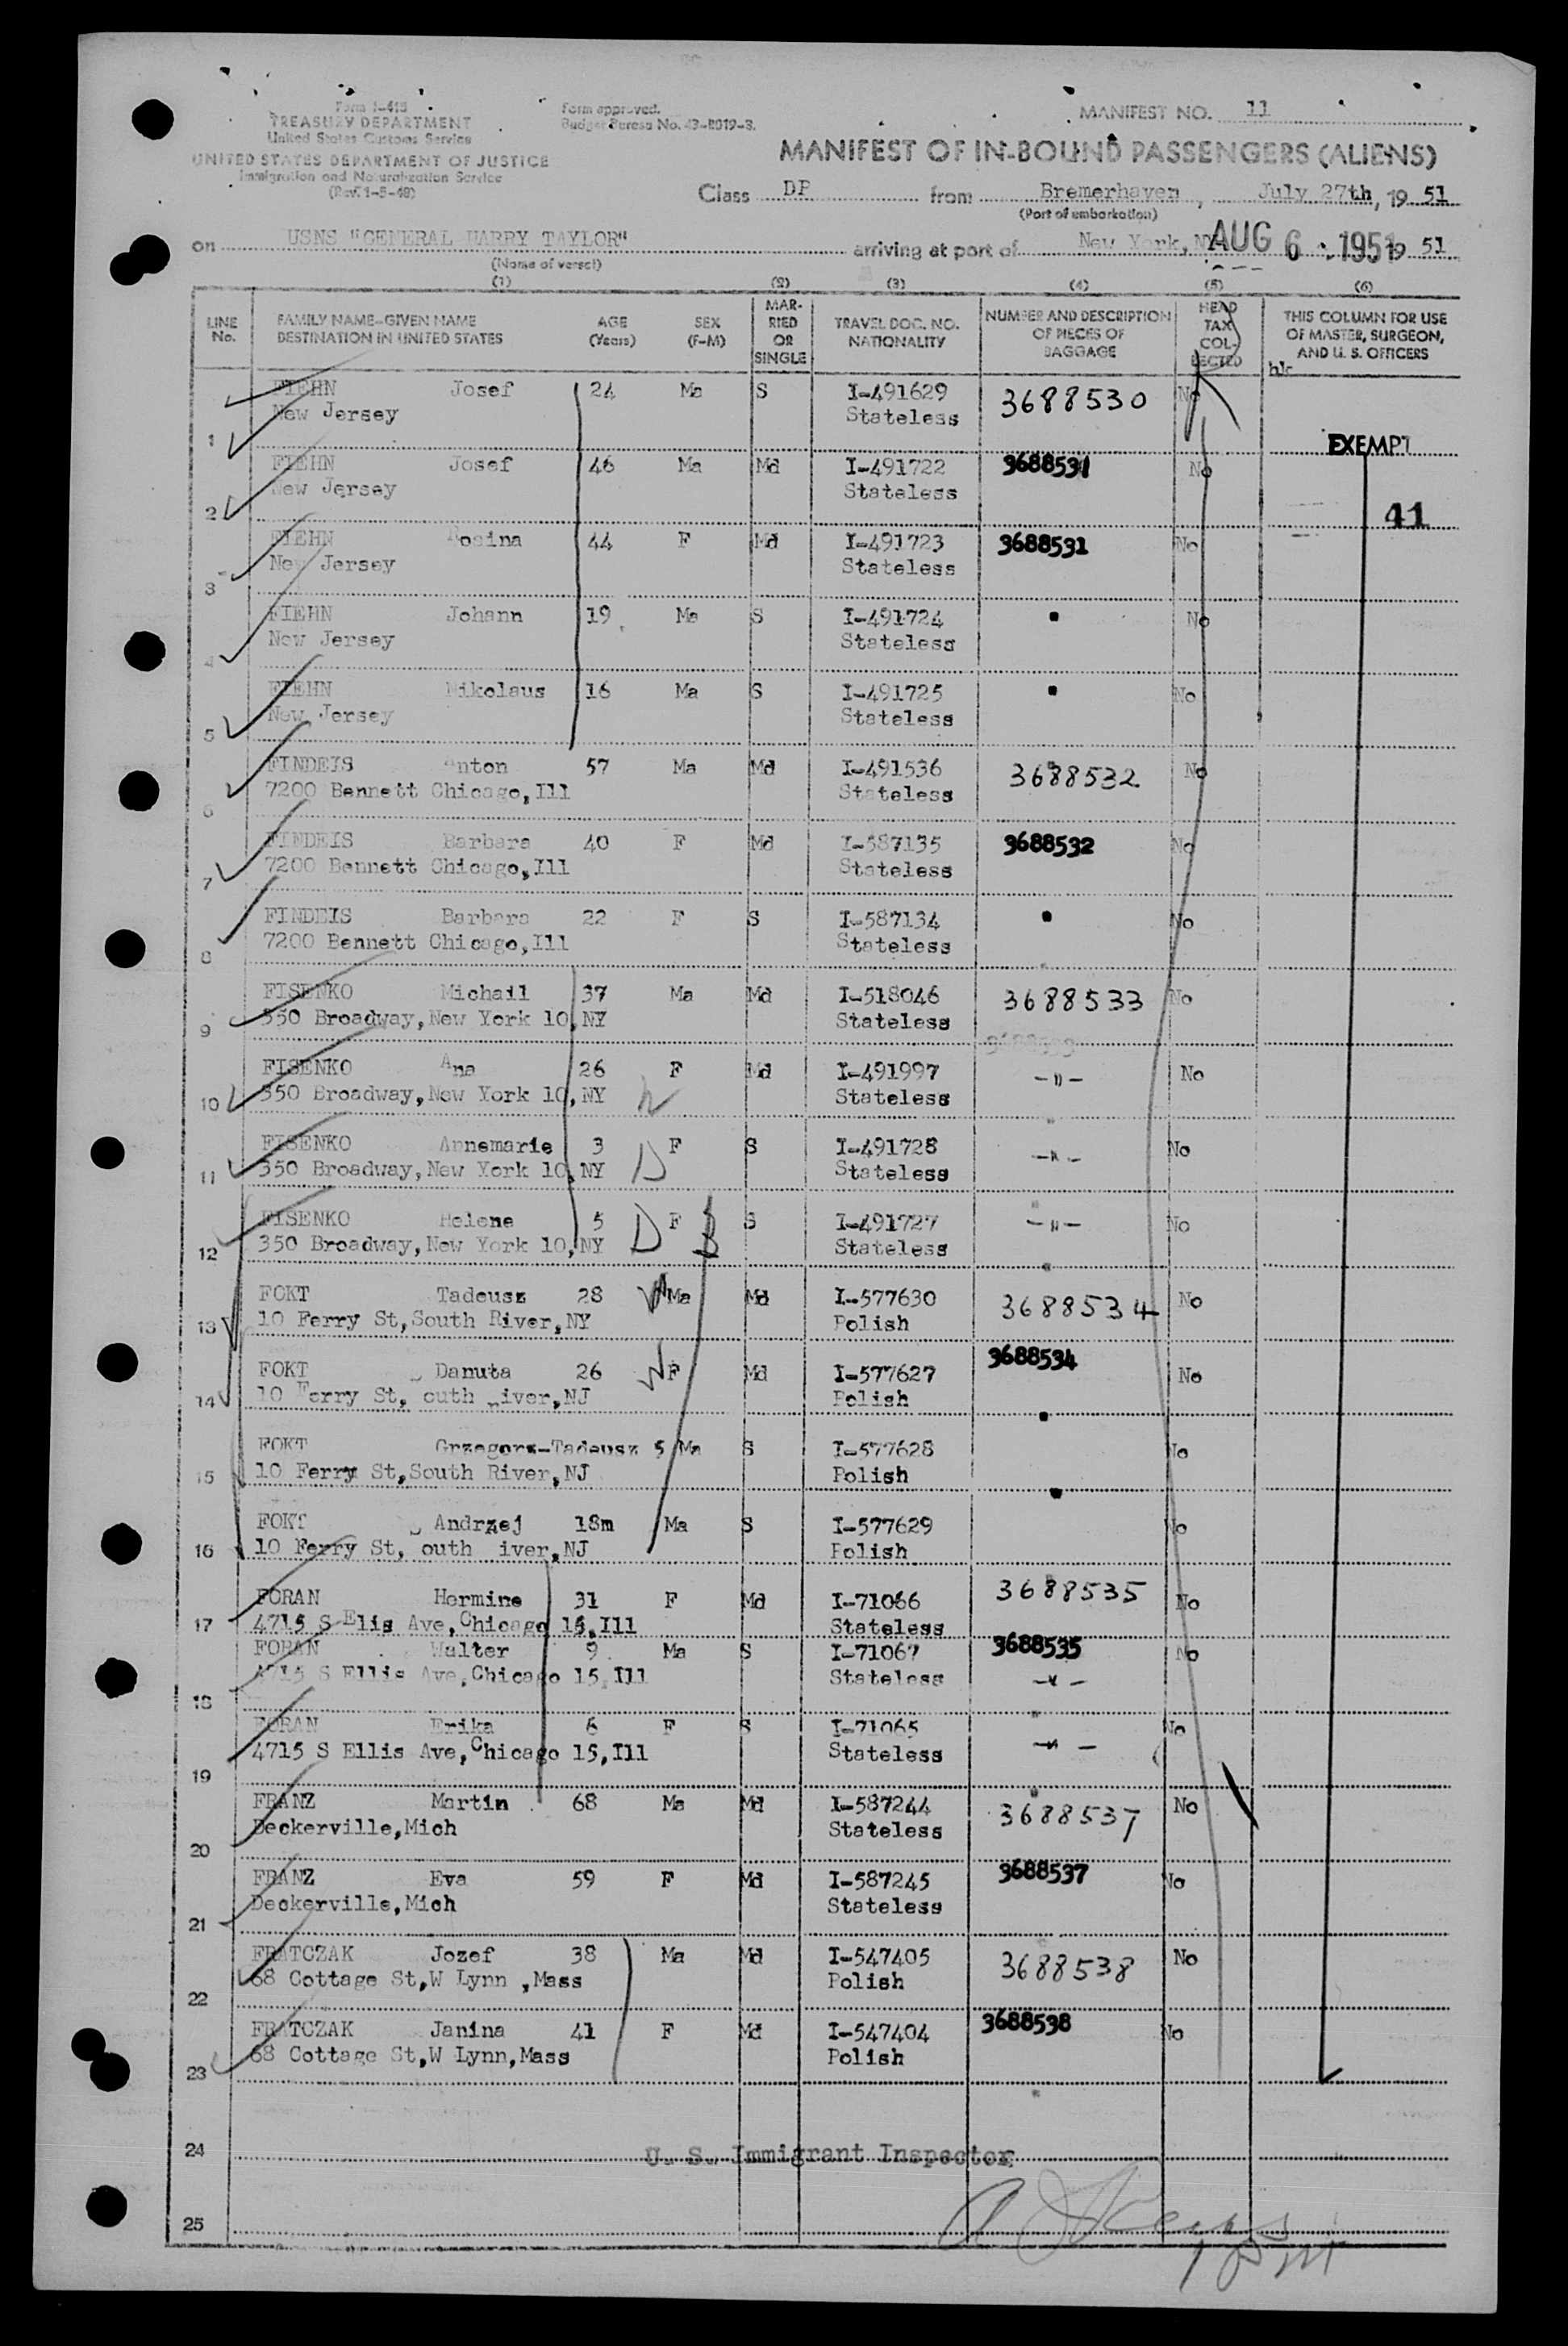 Form I-415
TREASURY DEPARTMENT
United States Customs Service
UNITED STATES DEPARTMENT OF JUSTICE
Immigration and Naturalization Service
(Rev. 1-5-49)
Form approved.
Budget Bureau No. 43-R019-3.
MANIFEST NO. 11
MANIFEST OF IN-BOUND PASSENGERS (ALIENS)
Class DP from Bremerhaven, July 27th, 19 51
(Port of embarkation)
on USNS "GENERAL HARRY TAYLOR" arriving at port of New York, NY AUG 6 1951 19 51
(Name of vessel)
(1) (2) (3) (4) (5) (6)
LINE No. FAMILY NAME-GIVEN NAME DESTINATION IN UNITED STATES AGE (Years) SEX (F-M) MARRIED OR SINGLE TRAVEL DOC. NO. NATIONALITY NUMBER AND DESCRIPTION OF PIECES OF BAGGAGE HEAD TAX COLLECTED THIS COLUMN FOR USE OF MASTER, SURGEON, AND U. S. OFFICERS
FIEHN Josef 24 Ma S I-491629 3688530 No
1 New Jersey Stateless
EXEMPT
FIEHN Josef 46 Ma Md I-491722 3688531 No
2 New Jersey Stateless
41
FIEHN Rosina 44 F Md I-491723 3688531 No
3 New Jersey Stateless
FIEHN Johann 19 Ma S I-491724 " No
4 New Jersey Stateless
FIEHN Nikolaus 16 Ma S I-491725 " No
5 New Jersey Stateless
FINDEIS Anton 57 Ma Md I-491536 3688532 No
6 7200 Bennett Chicago,Ill Stateless
FINDEIS Barbara 40 F Md I-587135 3688532 No
7 7200 Bennett Chicago,Ill Stateless
FINDEIS Barbara 22 F S I-587134 " No
8 7200 Bennett Chicago,Ill Stateless
FISENKO Michail 37 Ma Md I-518046 3688533 No
9 350 Broadway,New York 10,NY Stateless
FISENKO Ana 26 F Md I-491997 -"- No
10 350 Broadway,New York 10,NY Stateless
FISENKO Annemarie 3 F S I-491728 -"- No
11 350 Broadway,New York 10,NY D Stateless
FISENKO Helene 5 D F S I-491727 -"- No
12 350 Broadway,New York 10,NY Stateless
FOKT Tadeusz 28 Ma Md I-577630 3688534 No
13 10 Ferry St,South River,NY Polish
FOKT Danuta 26 F Md I-577627 3688534 No
14 10 Ferry St, outh iver,NJ Polish
FOKT Grzegorz-Tadeusz 5 Ma S I-577628 " No
15 10 Ferry St,South River,NJ Polish
FOKT Andrzej 18m Ma S I-577629 " No
16 10 Ferry St, outh iver,NJ Polish
FORAN Hermine 31 F Md I-71066 3688535 No
17 4715 S Elis Ave,Chicago 15,Ill Stateless
FORAN Walter 9 Ma S I-71067 3688535 No
18 4715 S Ellis Ave,Chicago 15,Ill Stateless -"-
FORAN Erika 6 F S I-71065 -"- No
19 4715 S Ellis Ave,Chicago 15,Ill Stateless
FRANZ Martin 68 Ma Md I-587244 3688537 No
20 Deckerville,Mich Stateless
FRANZ Eva 59 F Md I-587245 3688537 No
21 Deckerville,Mich Stateless
FRATCZAK Jozef 38 Ma Md I-547405 3688538 No
22 68 Cottage St,W Lynn ,Mass Polish
FRATCZAK Janina 41 F Md I-547404 3688538 No
23 68 Cottage St,W Lynn,Mass Polish
24 U. S. Immigrant Inspector
25